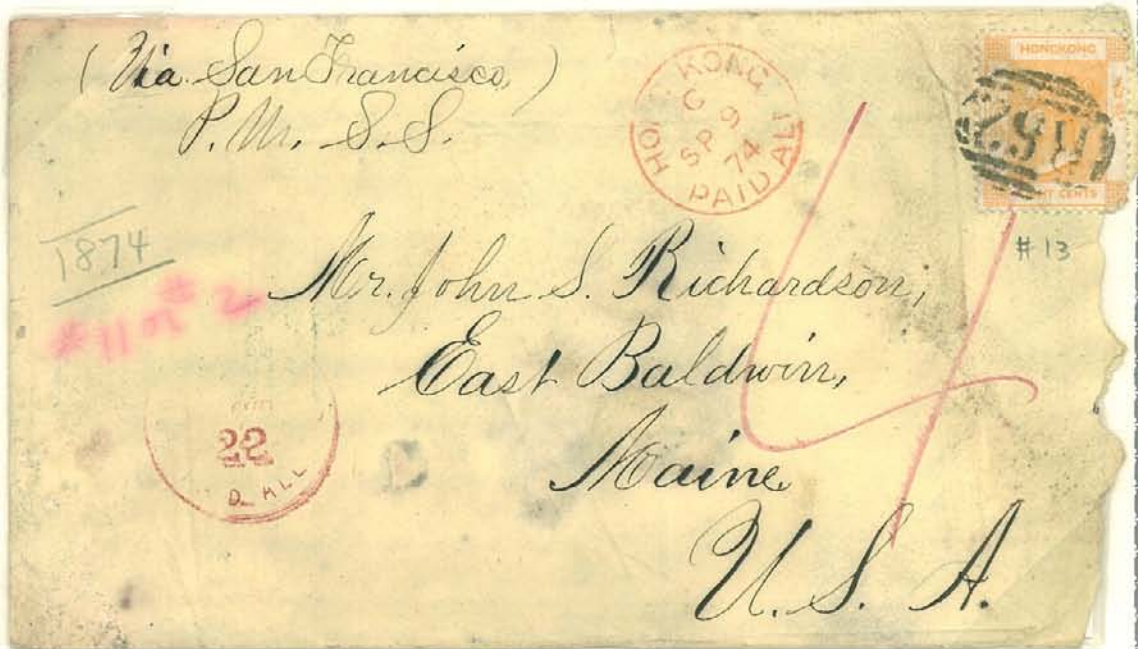 (Via San Francisco,)
P. M. S. S.
HONG KONG
C
SP 9
74
PAID ALL
HONGKONG
CENTS
B62
# 13
1874
# 11 or # 2
4
Mr. John S. Richardson,
East Baldwin,
Maine
U. S. A.
22
D ALL